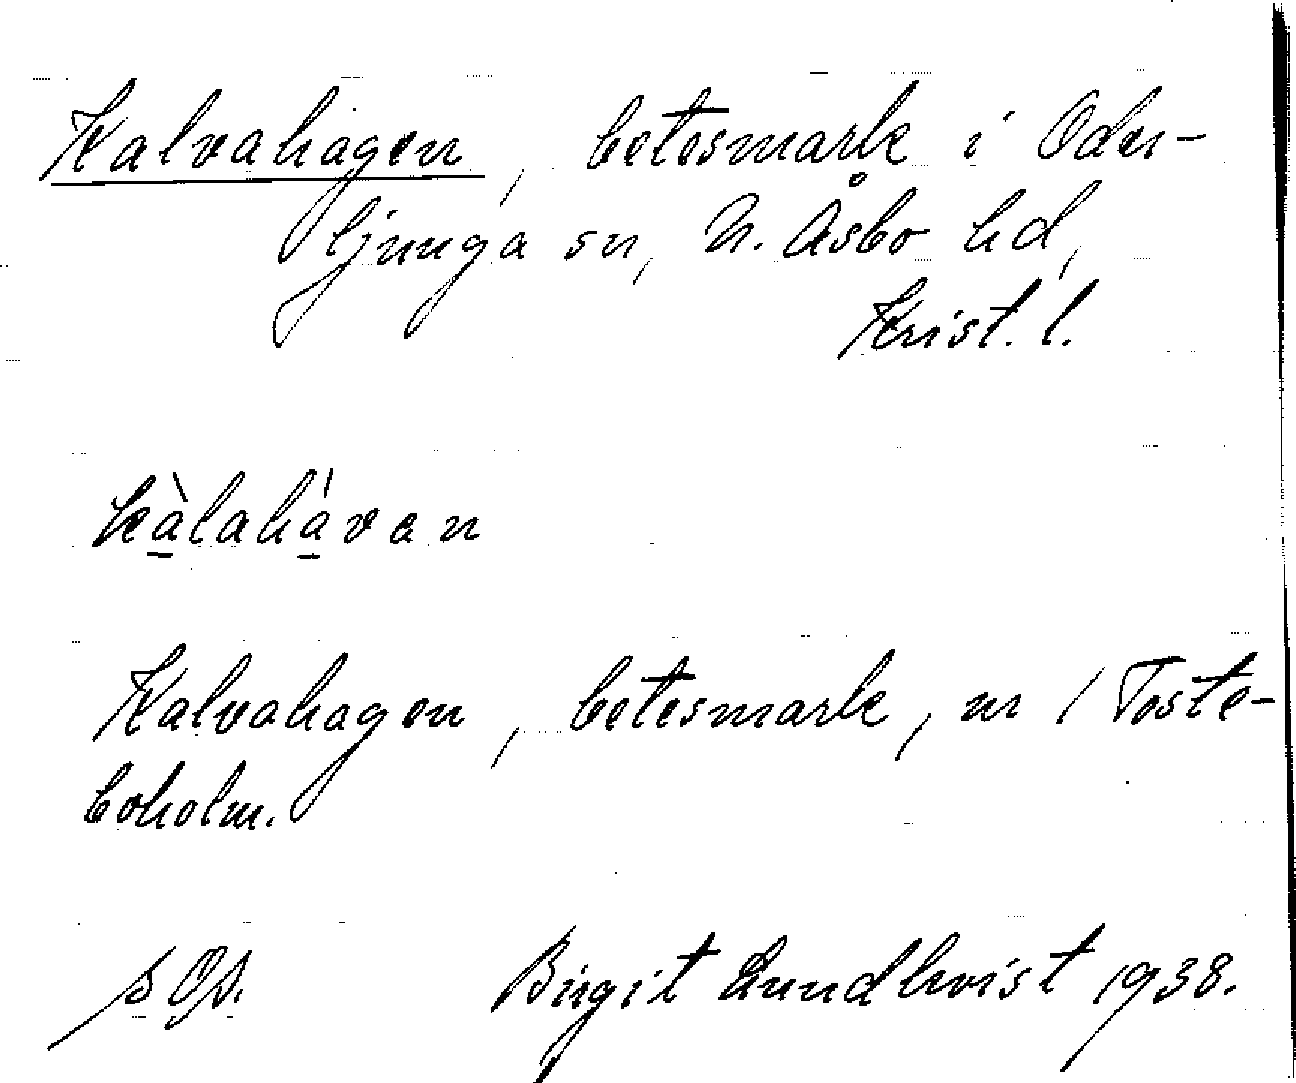 Kalvahagen, betesmark i Oder-
ljunga sn, N. Åsbo hd,
Krist. l.
kàlahávan
Kalvahagen, betesmark, nr 1 Toste-
boholm.
Birgit Lundkvist 1938.